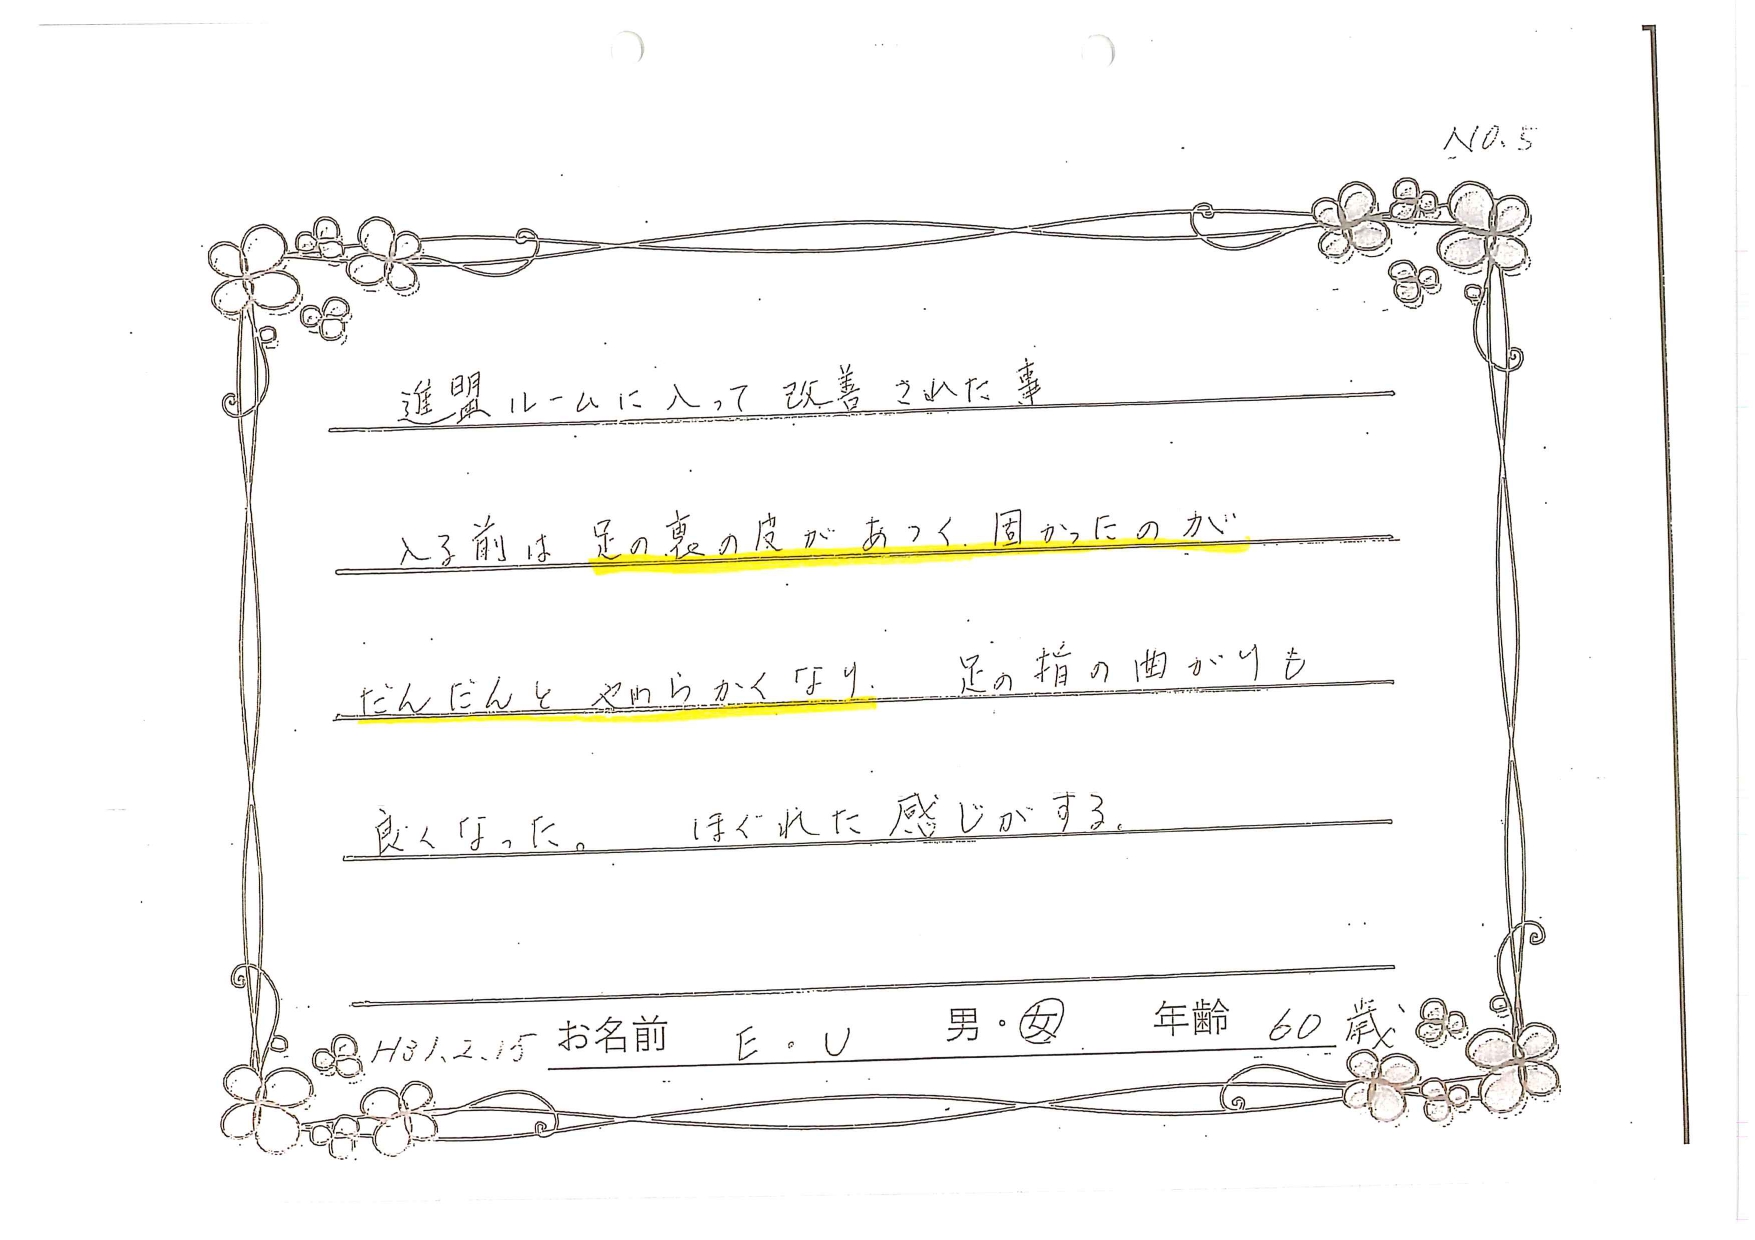 NO.5
進盟ルームに入って改善された事
入る前は足の裏の皮があつく、固かったのが
だんだんとやわらかくなり、足の指の曲がりも
良くなった。 ほぐれた感じがする。
H31.2.15 お名前 E・U 男・女 年齢 60歳